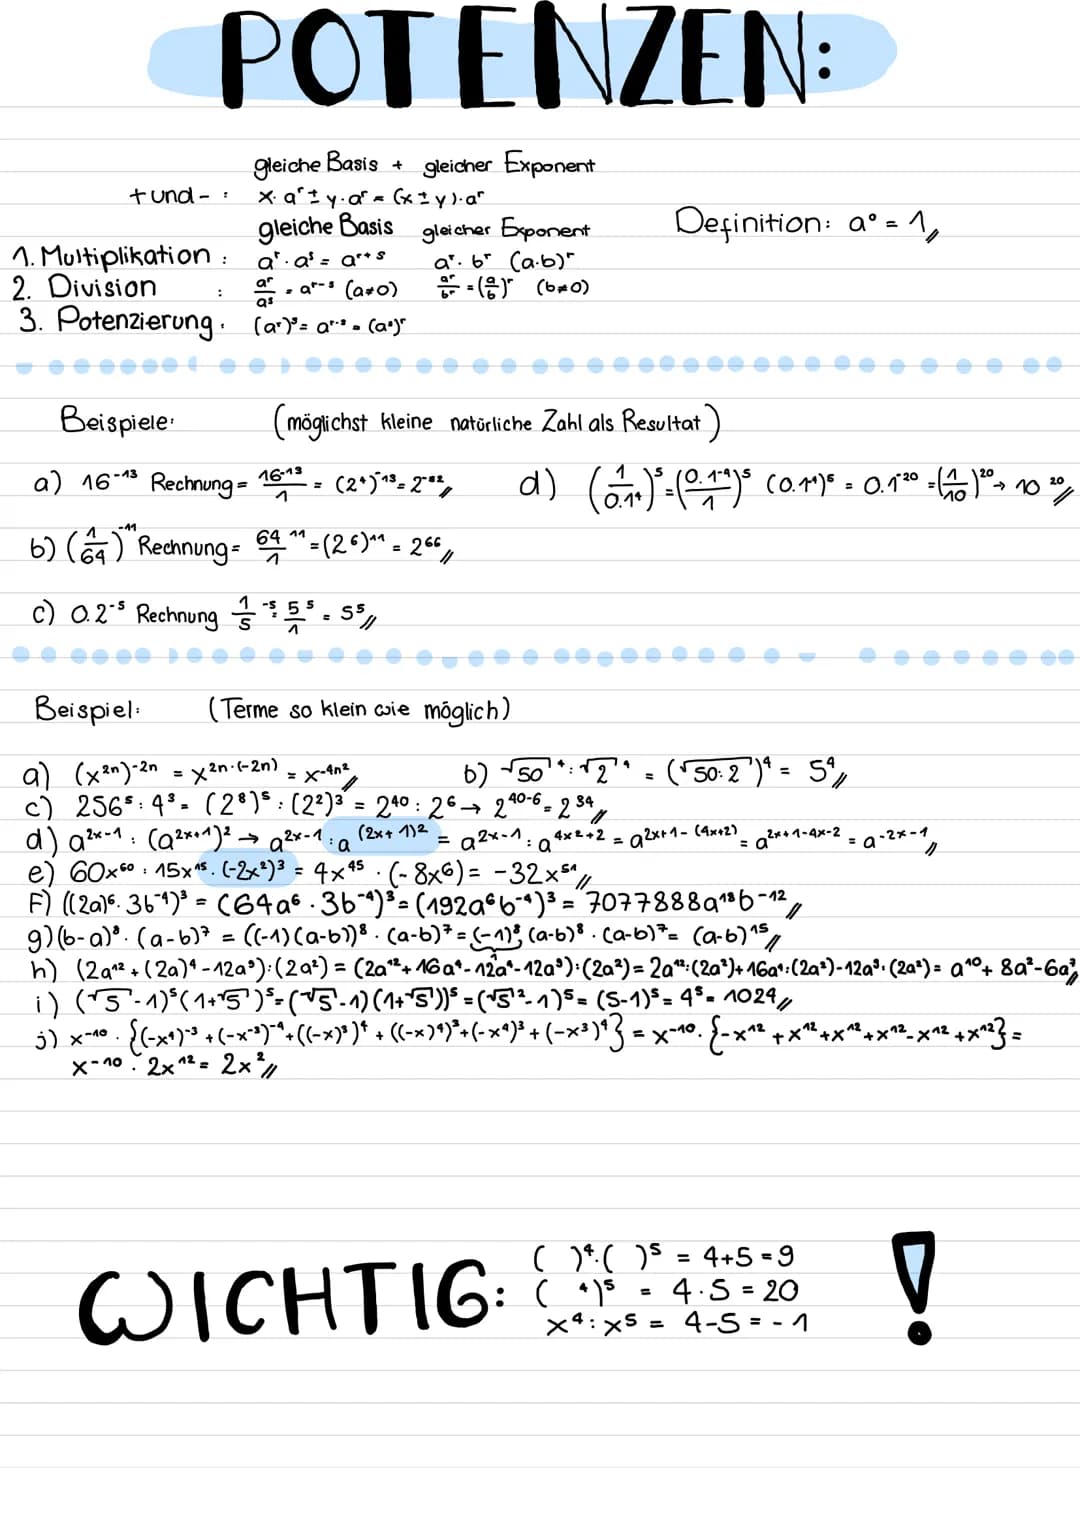 POTENZEN:
gleiche Basis + gleicher Exponent
+ und - : x·aʳ ± y·aʳ = (x ± y)·aʳ
gleiche Basis gleicher Exponent
Definition: a⁰ = 1
1. Multiplikation : aʳ·aˢ = aʳ⁺ˢ aʳ·bʳ (a·b)ʳ
2. Division : aʳ/aˢ = aʳ⁻ˢ (a≠0) aʳ/bʳ = (a/b)ʳ (b≠0)
3. Potenzierung. (aʳ)ˢ = aʳ·ˢ = (aˢ)ʳ
Beispiele: (möglichst kleine natürliche Zahl als Resultat)
a) 16⁻¹³ Rechnung = 16⁻¹³/1 = (2⁴)⁻¹³ = 2⁻⁵²
d) (1/0.1⁴)⁵ = (0.1⁻⁴/1)⁵ (0.1⁴)⁵ = 0.1⁻²⁰ = (1/10)²⁰ → 10²⁰
b) (1/64)⁻¹¹ Rechnung = 64¹¹/1 = (2⁶)¹¹ = 2⁶⁶
c) 0.2⁻⁵ Rechnung 1/5⁻⁵ = 5/1⁵ = 5⁵
Beispiel: (Terme so klein wie möglich)
a) (x²ⁿ)⁻²ⁿ = x^(2n·(-2n)) = x^(-4n²) b) √50⁴ : √2⁴ = (√50:2)⁴ = 5⁴
c) 256⁵ : 4³ = (2⁸)⁵ : (2²)³ = 2⁴⁰ : 2⁶ → 2⁴⁰⁻⁶ = 2³⁴
d) a^(2x-1) : (a^(2x+1))² → a^(2x-1) : a^((2x+1)2) = a^(2x-1) : a^(4x+2) = a^(2x+1-(4x+2)) = a^(2x+1-4x-2) = a^(-2x-1)
e) 60x⁶⁰ : 15x¹⁵ · (-2x²)³ = 4x⁴⁵ · (-8x⁶) = -32x⁵¹
F) ((2a)⁶ · 3b⁻⁴)³ = (64a⁶ · 3b⁻⁴)³ = (192a⁶b⁻⁴)³ = 7077888a¹⁸b⁻¹²
g) (b-a)⁸ · (a-b)⁷ = ((-1)(a-b))⁸ · (a-b)⁷ = (-1)⁸ (a-b)⁸ · (a-b)⁷ = (a-b)¹⁵
h) (2a¹² + (2a)⁴ - 12a³) : (2a²) = (2a¹² + 16a⁴ - 12a⁴ - 12a³) : (2a²) = 2a¹² : (2a²) + 16a⁴ : (2a²) - 12a³ : (2a²) = a¹⁰ + 8a² - 6a²
i) (√5 - 1)⁵ (1+√5)⁵ = (√5 - 1)(1+√5))⁵ = (√5² - 1)⁵ = (5-1)⁵ = 4⁵ = 1024
j) x⁻¹⁰ · {(-x⁴)⁻³ + (-x⁻³)⁻⁴ + ((-x)³)⁴ + ((-x)⁴)³ + (-x⁴)³ + (-x³)⁴} = x⁻¹⁰ · {-x¹² + x¹² + x¹² + x¹² - x¹² + x¹²} =
x⁻¹⁰ · 2x¹² = 2x²
WICHTIG: ( )⁴·( )⁵ = 4+5 = 9
( ⁴)⁵ = 4·5 = 20
x⁴ : x⁵ = 4-5 = -1
!